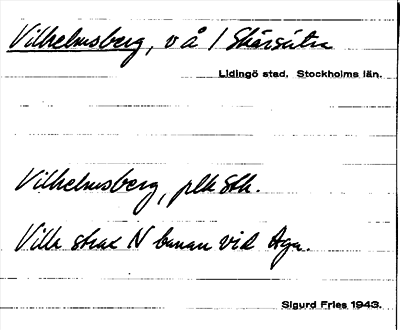 Vilhelmsberg, v å / Skärsätra
Lidingö stad. Stockholms län.
Vilhelmsberg, plk Sth.
Villa strax N banan vid Aga.
Sigurd Fries 1943.